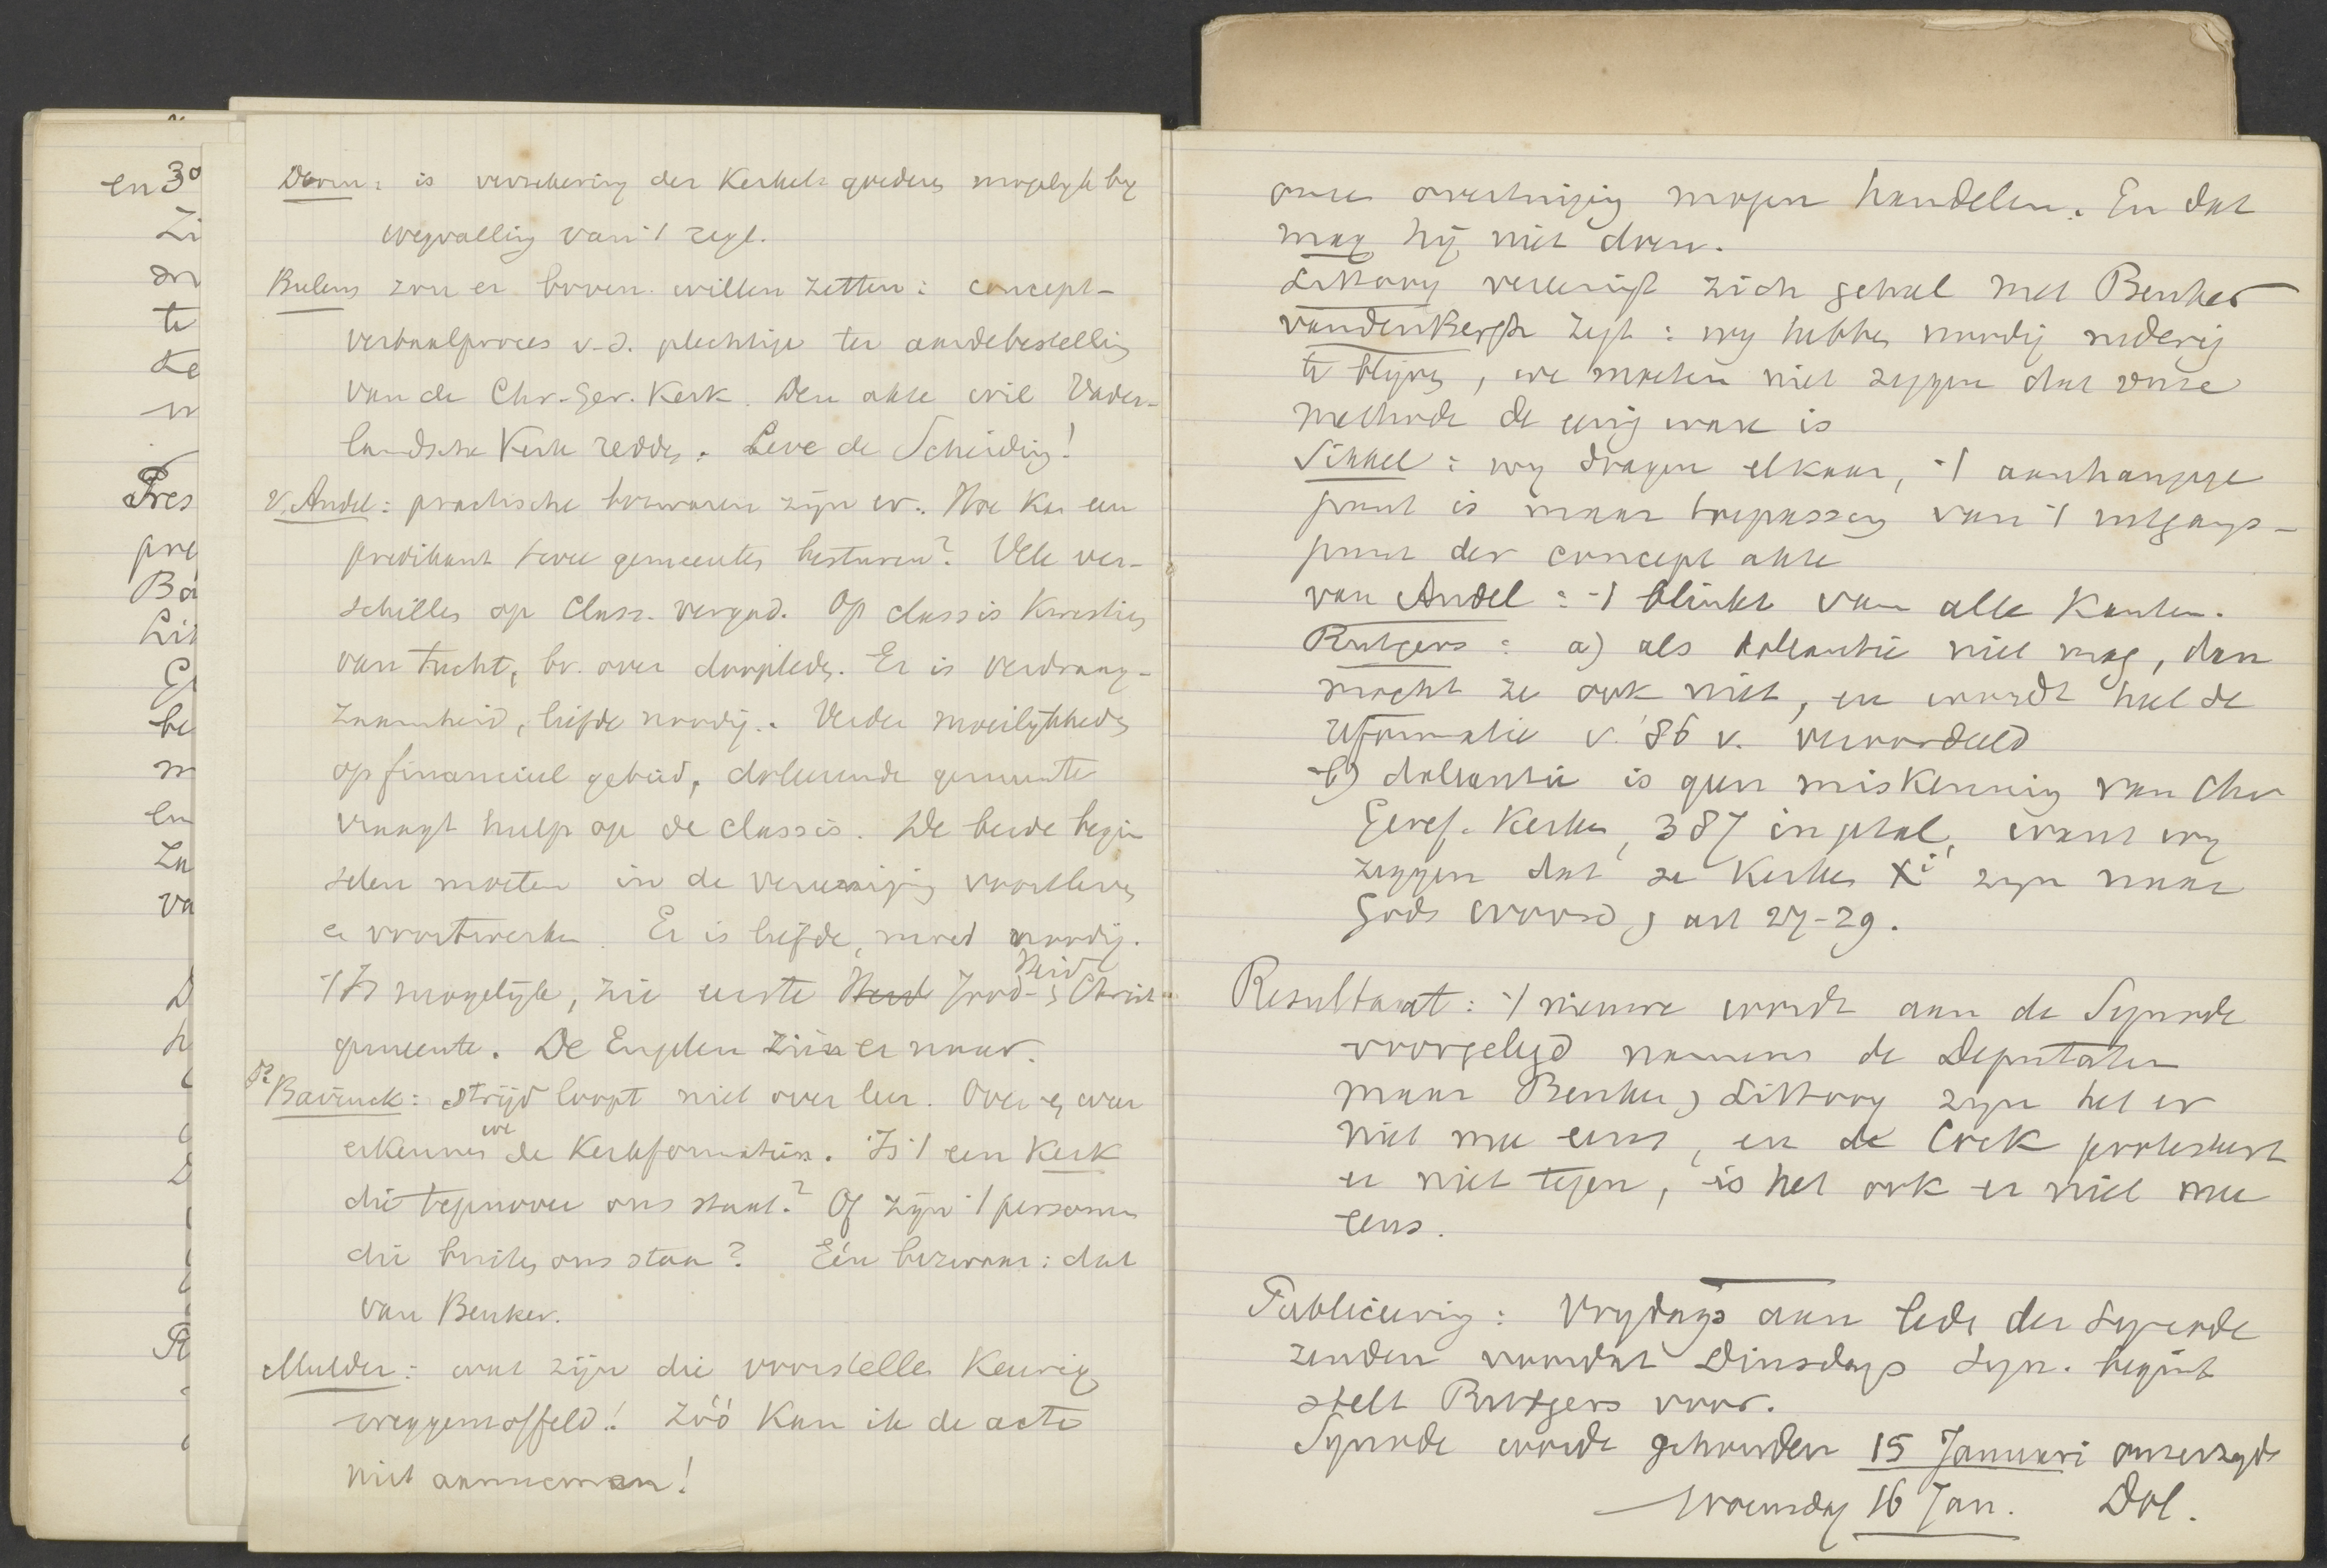 en 3°
Zi
on
te
de
Pres
pre
Ba
Lit
be
m
en
Za
va
D
h
Doorn: is verzekering der Kerkel. goederen mogelijk by
wegvalling van 't regl.
Bulens zou er boven willen zetten: concept-
verbaalproces v.d. plechtige ter aardebestelling
van de Chr. Ger. Kerk. Den akte wil Vader-
landsche Kerk redden. Leve de Scheiding!
v. Andel: practische bezwaren zijn er. Hoe kan een
predikant twee gemeenten besturen? Vele ver-
schillen op Class. vergad. Op classis kwesties
van tucht, bv. over doopleden. Er is verdraag-
zaamheid, liefde noodig. Verder moeilijkheden
op financieel gebied, doleerende gemeente
vraagt hulp op de classis. De beide begin
selen moeten in de vereeniging voortleven
en voortwerken. Er is liefde, moed noodig.
't Is mogelijk, zie eerste Heid Jood- Heid & Christ-
gemeente. De Engelen zien er naar.
Ds Bavinck: strijd loopt niet over leer. Over en weer
erkennen we de Kerkformatie. Is 't een Kerk
die tegenover ons staat? Of zijn 't personen
die buiten ons staan? Eén bezwaar: dat
van Beuker.
Mulder: wat zijn die voorstellen keurig
weggemoffeld! Zóó kan ik de acte
niet aannemen!
onze overtuiging mogen handelen. En dat
mag hij niet doen.
Littooy vereenigt zich geheel met Beuker
van den Bergh zegt: wy hebben noodig nederig
te blijven, we moeten niet zeggen dat onze
methode de eenig ware is
Sikkel: wy dragen elkaar, 't aanhangige
punt is maar toepassing van 't uitgangs-
punt der concept akte
van Andel: 't blinkt van alle kanten.
Rutgers: a) als doleantie niet mag, dan
mocht ze ook niet, en wordt heel de
reformatie v. '86 v. veroordeeld
b) doleantie is geen miskenning van Chr
Geref. Kerken, 387 in getal, want wy
zeggen dat de Kerken Xi zyn naar
Gods woord, art 27-29.
Resultaat: 't nieuwe wordt aan de Synode
voorgelegd namens de Deputaten
maar Beuker, Littooy zyn het er
niet mee eens, en de Cock protesteert
er niet tegen, is het ook er niet mee
eens.
Publiceering: Vrydags aan leden der Synode
zenden voordat Dinsdags Syn. begint
stelt Rutgers voor.
Synode wordt gehouden 15 Januari onzerzyds
Woensdag 16 Jan. Dol.